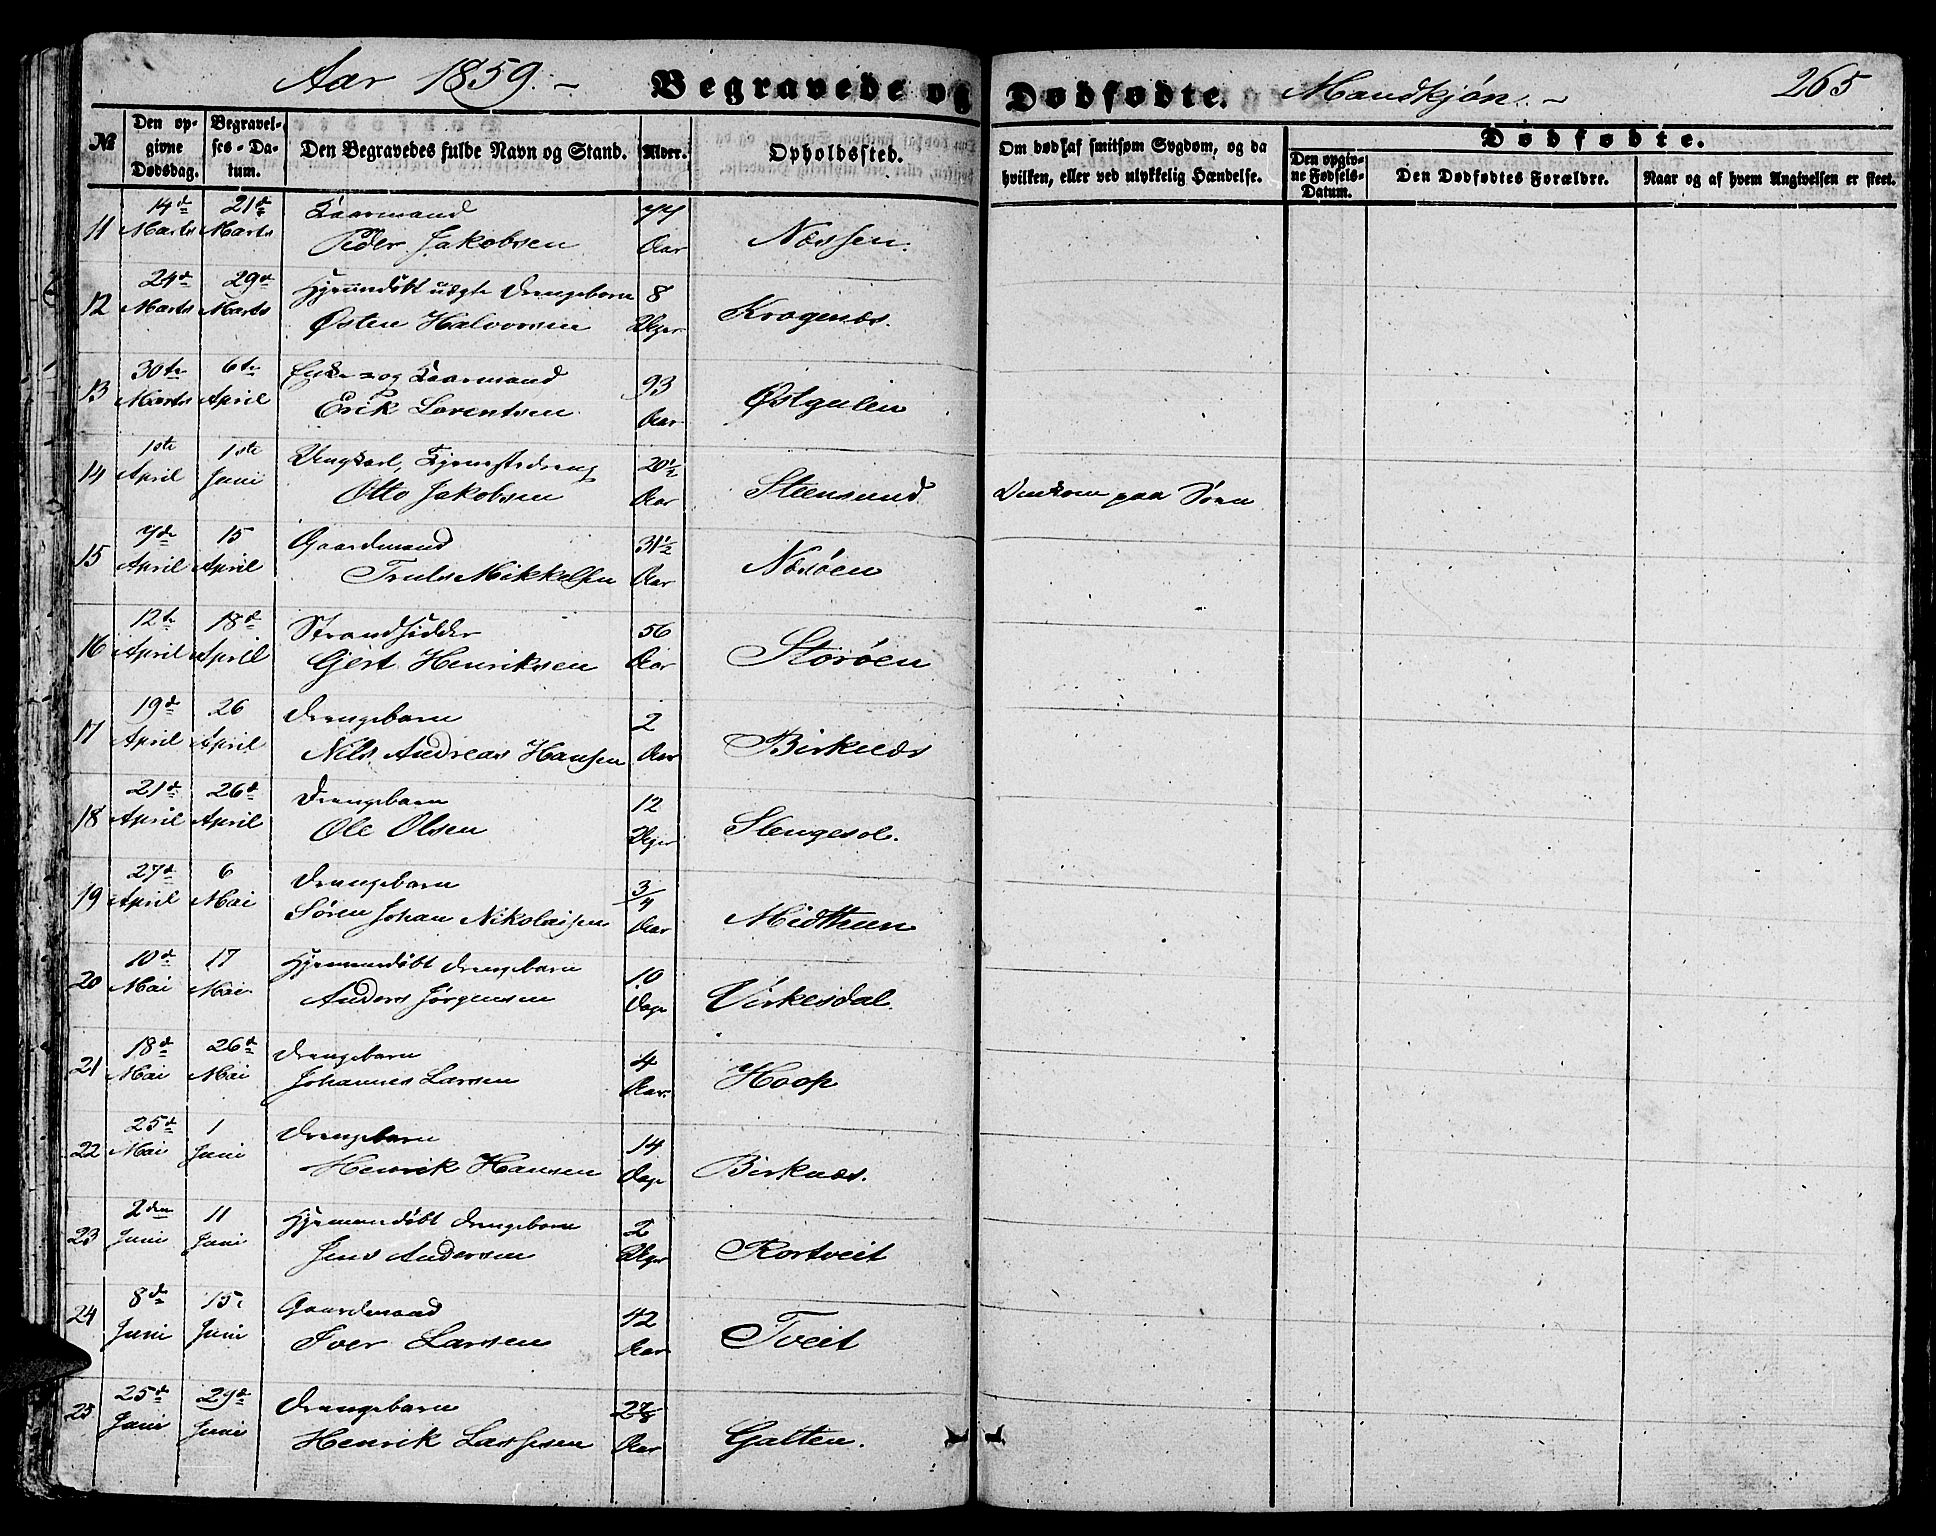 Aar 1859. Begravede og Dødfødte. Mandkjøn. 265
№ Den opgivne Dødsdag. Begravelses-Datum. Den Begravedes fulde Navn og Stand. Alder. Opholdssted. Om død af smitsom Sygdom, og da hvilken, eller ved ulykkelig Hændelse. Dødfødte. Den opgivne Fødsels-Datum. Den Dødfødtes Forældre. Naar og af hvem Angivelsen er skeet.
14de 21de Kaarmand 77
11 Marts Marts Peder Jakobsen Aar Næssen.
24de 29de Hjemmedøbt uægte Drengebarn 8
12 Marts Marts Østen Halvorsen Uger Kragenæs.
30te 6te Enke- og Kaarmand 93
13 Marts April Erik Lorentsen Aar Østgulen
1ste 1ste Ungkarl, Tjenestedreng 20½
14 April Juni Otto Jakobsen Aar Steensund Omkom paa Søen
7de 15 Gaardmand 31½
15 April April Truls Mikkelsen Aar Næsøen
12te 18de Strandsidder 56
16 April April Gjert Henriksen Aar Storøen
19de 26 Drengebarn 2
17 April April Nils Andreas Hansen Aar Birknæs
21de 26de Drengebarn 12
18 April April Ole Olsen Uger Stengesol.
27de 6 Drengebarn 3/4
19 April Mai Søren Johan Nikolaisen Aar Midttun
10de 17 Hjemmedøbt Drengebarn 10
20 Mai Mai Anders Jørgensen Dage Virkesdal.
18de 26de Drengebarn 4
21 Mai Mai Johannes Larsen Aar. Hoop
25de 1 Drengebarn 14
22 Mai Juni Henrik Hansen Dage Birknæs.
2den 11 Hjemmedøbt Drengebarn 2
23 Juni Juni Jens Andersen Uger Kortveit
8de 15 Gaardmand 42
24 Juni Juni Iver Larsen Aar Tveit
25de 29de Drengebarn
25 Juni Juni Henrik Lassesen Aar Galten.